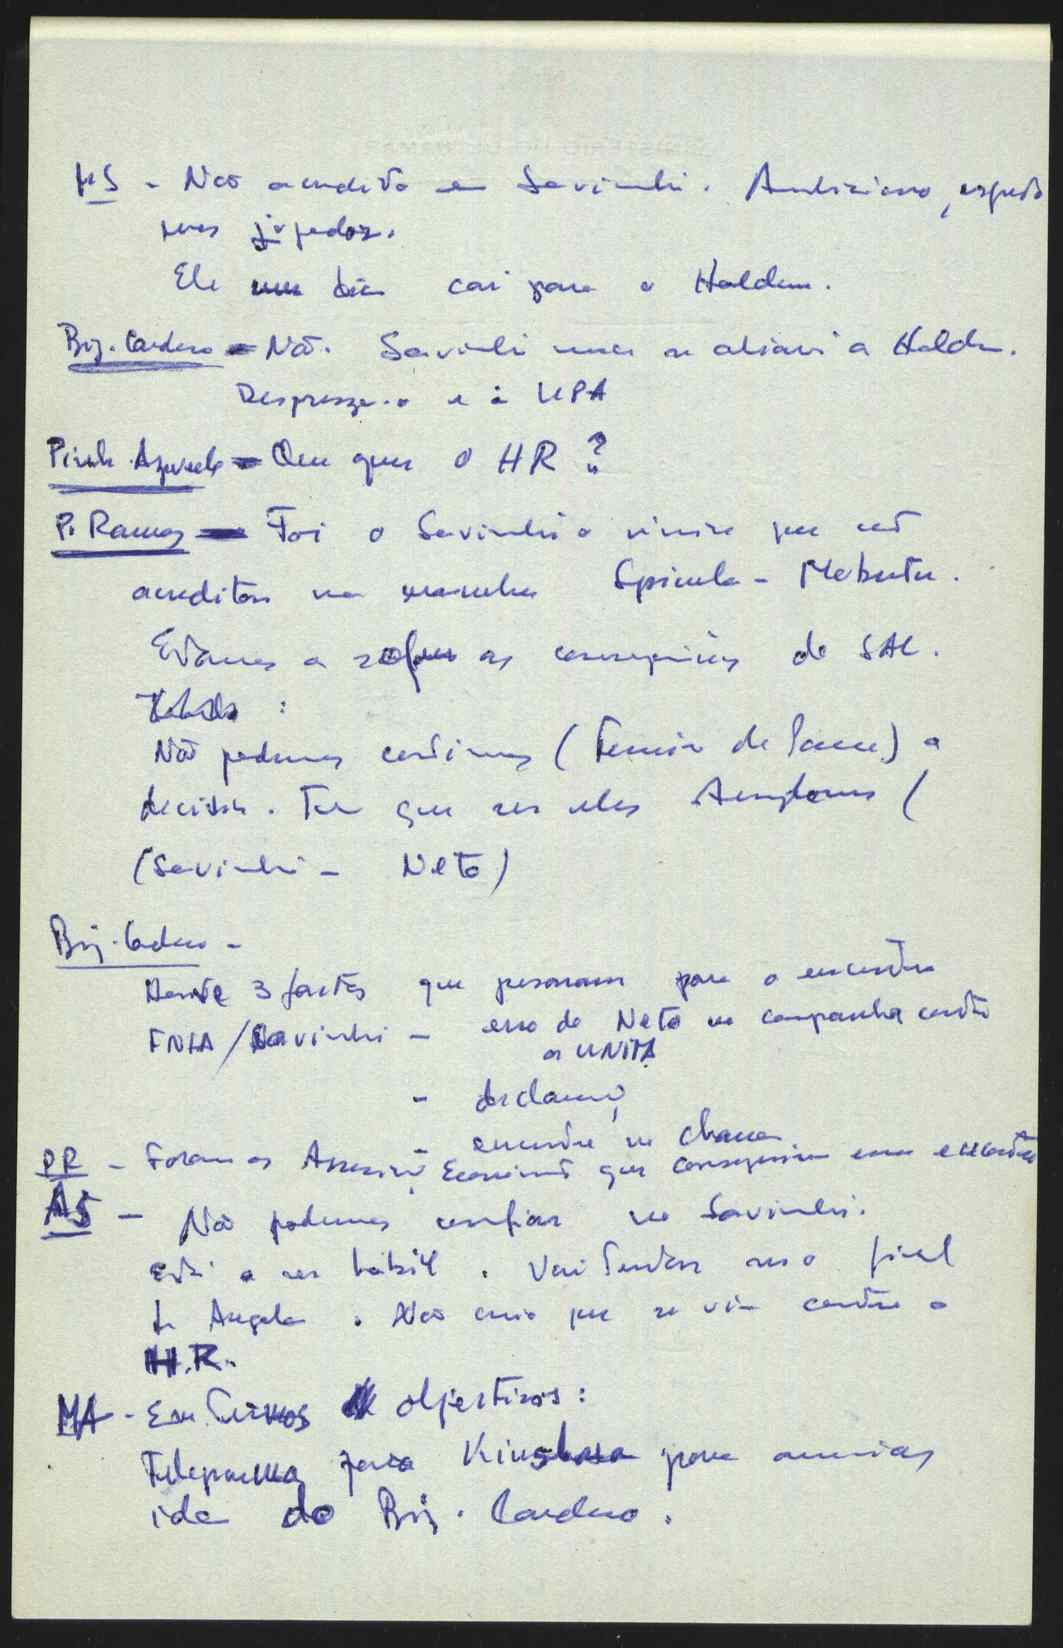 MS - Não acredito em Savimbi. Ambicioso, esperto
mas jogador.
Ele um dia cai para o Holden.
Brig. Cardoso - Não. Savimbi nunca se aliará a Holden.
Despreza-o e à UPA
Pinh. Azevedo - Que quer o HR?
P. Ramos - Foi o Savimbi o único que não
acreditou na manobra Spinola - Mobutu.
Estamos a sofrer as consequências do SAL.
Não podemos continuar ( ) a
decisão. Tem que ser eles Angolanos (
(Savimbi - Neto)
Brig. Cardoso -
Houve 3 factos que pesaram para o encontro
FNLA/Savimbi - erro do Neto na campanha contra
a UNITA
- declarações
- encontro no
PR - Foram os que conseguiram esse encontro
AS - Não podemos confiar no Savimbi.
Está a ser hábil. Vai tentar ser o fiel
de Angola. Não creio que se vire contra o
H.R.
MA - Em termos objectivos:
Telegrama para Kinshasa para anunciar
ida do Brig. Cardoso.